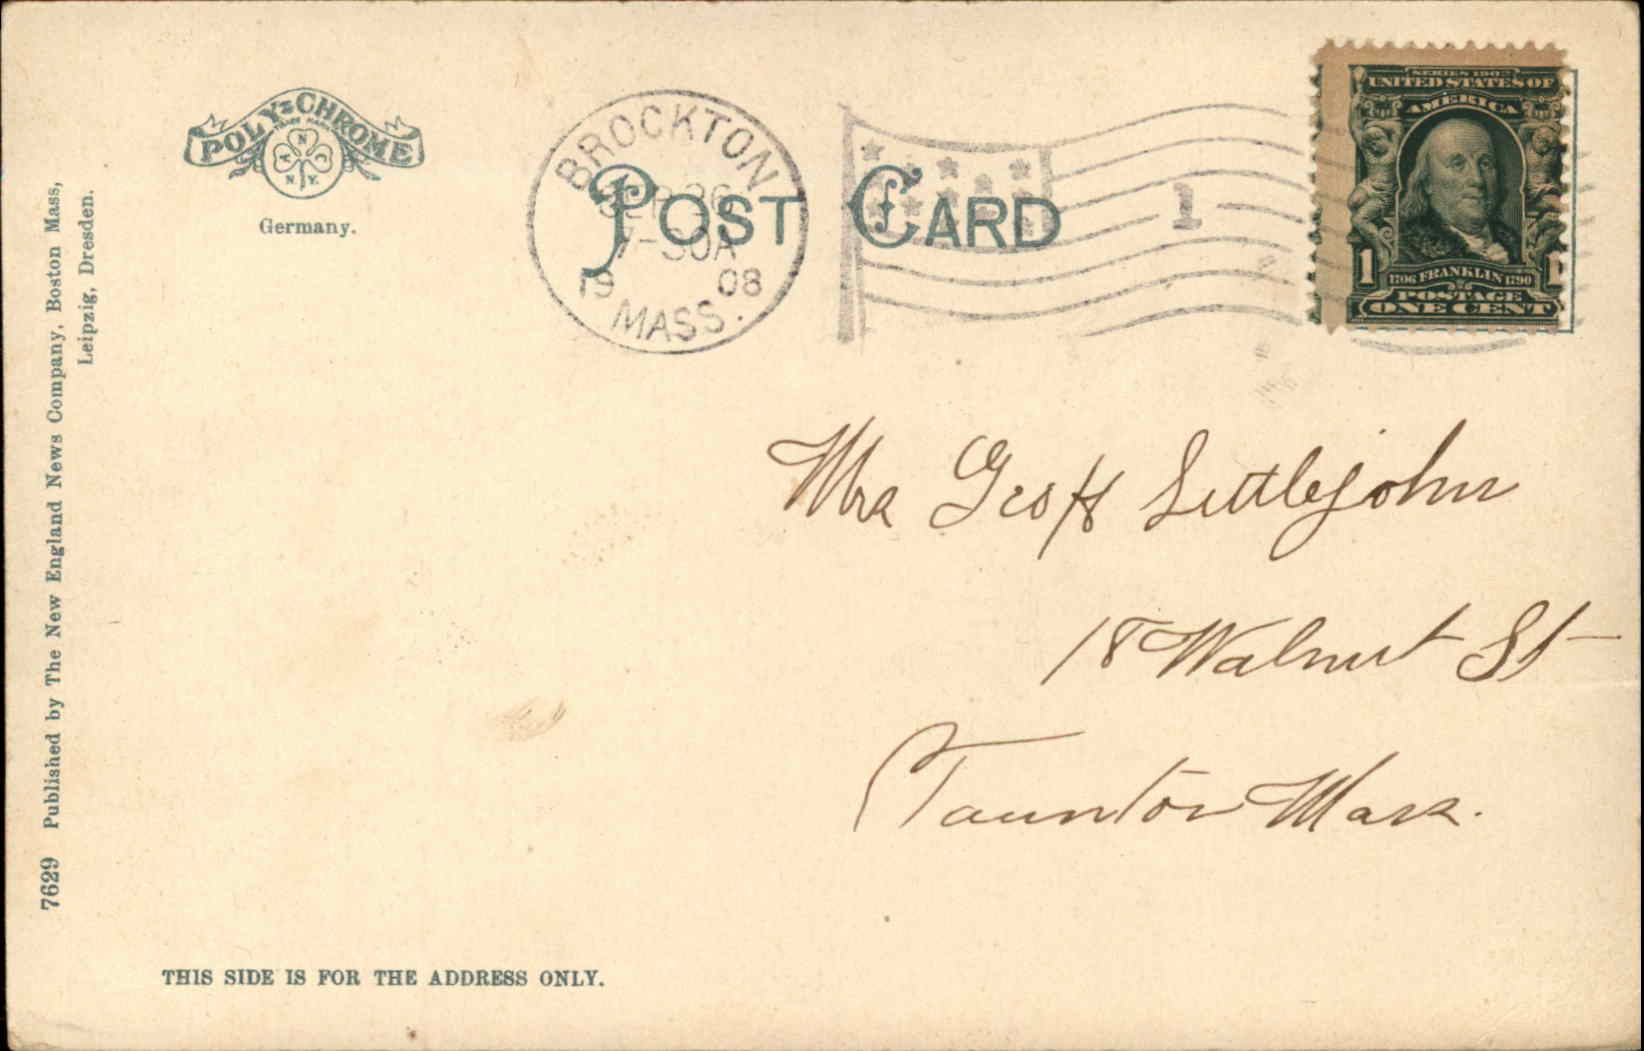 POLY-CHROME
A N C
N.Y.
Germany.
BROCKTON
SEP 26
7-30A
1908
MASS.
POST CARD
1
SERIES 1902
UNITED STATES OF
AMERICA
1706 FRANKLIN 1790
1 1
POSTAGE
ONE CENT
Mrs Geo H Littlejohn
18 Walnut St
Taunton Mass.
7629 Published by The New England News Company, Boston Mass,
Leipzig, Dresden.
THIS SIDE IS FOR THE ADDRESS ONLY.